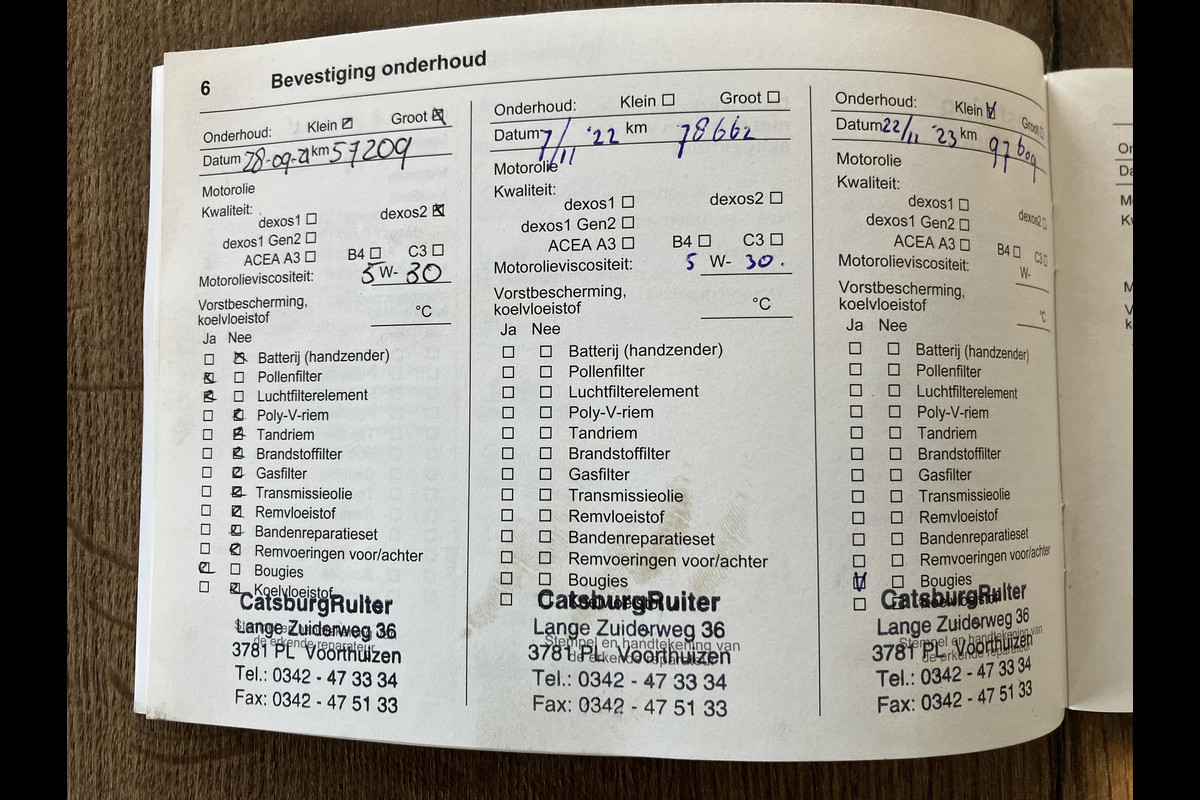 6 Bevestiging onderhoud
Onderhoud: Klein ☑ Groot ☒
Datum 28-09-21 km 57209
Motorolie
Kwaliteit:
dexos1 ☐ dexos2 ☒
dexos1 Gen2 ☐
ACEA A3 ☐ B4 ☐ C3 ☐
Motorolieviscositeit: 5 W- 30
Vorstbescherming,
koelvloeistof °C
Ja Nee
☐ ☒ Batterij (handzender)
☒ ☐ Pollenfilter
☒ ☐ Luchtfilterelement
☐ ☒ Poly-V-riem
☐ ☒ Tandriem
☐ ☒ Brandstoffilter
☐ ☒ Gasfilter
☐ ☒ Transmissieolie
☐ ☒ Remvloeistof
☐ ☒ Bandenreparatieset
☐ ☒ Remvoeringen voor/achter
☒ ☐ Bougies
☐ ☒ Koelvloeistof
CatsburgRuiter
Lange Zuiderweg 36
Stempel en handtekening van
de erkende reparateur
3781 PL Voorthuizen
Tel.: 0342 - 47 33 34
Fax: 0342 - 47 51 33
Onderhoud: Klein ☐ Groot ☐
Datum 7/11 '22 km 78662
Motorolie
Kwaliteit:
dexos1 ☐ dexos2 ☐
dexos1 Gen2 ☐
ACEA A3 ☐ B4 ☐ C3 ☐
Motorolieviscositeit: 5 W- 30.
Vorstbescherming,
koelvloeistof °C
Ja Nee
☐ ☐ Batterij (handzender)
☐ ☐ Pollenfilter
☐ ☐ Luchtfilterelement
☐ ☐ Poly-V-riem
☐ ☐ Tandriem
☐ ☐ Brandstoffilter
☐ ☐ Gasfilter
☐ ☐ Transmissieolie
☐ ☐ Remvloeistof
☐ ☐ Bandenreparatieset
☐ ☐ Remvoeringen voor/achter
☐ ☐ Bougies
☐ ☐ Koelvloeistof
CatsburgRuiter
Lange Zuiderweg 36
Stempel en handtekening van
de erkende reparateur
3781 PL Voorthuizen
Tel.: 0342 - 47 33 34
Fax: 0342 - 47 51 33
Onderhoud: Klein ☑ Groot ☐
Datum 22/11 '23 km 97609
Motorolie
Kwaliteit:
dexos1 ☐ dexos2 ☐
dexos1 Gen2 ☐
ACEA A3 ☐ B4 ☐ C3 ☐
Motorolieviscositeit: W-
Vorstbescherming,
koelvloeistof °C
Ja Nee
☐ ☐ Batterij (handzender)
☐ ☐ Pollenfilter
☐ ☐ Luchtfilterelement
☐ ☐ Poly-V-riem
☐ ☐ Tandriem
☐ ☐ Brandstoffilter
☐ ☐ Gasfilter
☐ ☐ Transmissieolie
☐ ☐ Remvloeistof
☐ ☐ Bandenreparatieset
☐ ☐ Remvoeringen voor/achter
☑ ☐ Bougies
☐ ☐ Koelvloeistof
CatsburgRuiter
Lange Zuiderweg 36
Stempel en handtekening van
de erkende reparateur
3781 PL Voorthuizen
Tel.: 0342 - 47 33 34
Fax: 0342 - 47 51 33